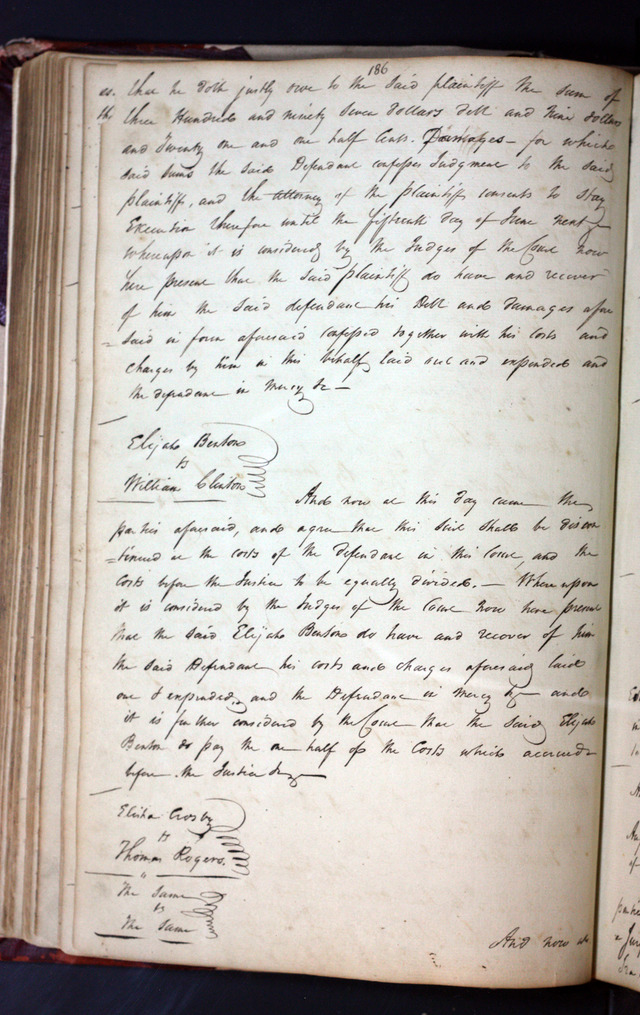 186
es. that he doth justly owe to the said plaintiff the sum of
th. three Hundred and ninety seven dollars debt and nine dollars
and Twenty one and one half Cents. Damages – for which
said sums the said Defendant confesses Judgment to the said
plaintiff, and the attorney of the plaintiff consents to stay
Execution therefore until the fifteenth day of June next
whereupon it is considered by the Judges of the Court now
here present that the said plaintiff do have and recover
of him the said defendant his Debt and damages afore
= said in form aforesaid confessed together with his costs and
charges by him in this behalf laid out and expended and
the defendant in mercy &c –
Elijah Benton
vs
William Clinton
And now at this day came the
parties aforesaid, and agree that this Suit shall be discon
=tinued at the costs of the defendant in this Court, and the
costs before the Justice to be equally divided. – Where upon
it is considered by the Judges of the Court now here present
that the said Elijah Benton do have and recover of him
the said Defendant his costs and charges aforesaid laid
out & expended, and the Defendant in mercy &c – and
it is further considered by the Court that the said Elijah
Benton do pay the one half of the Costs which accrued
before the Justice &c –
Elisha Crosby
vs
Thomas Rogers.
"
The Same
vs
The Same
And now at